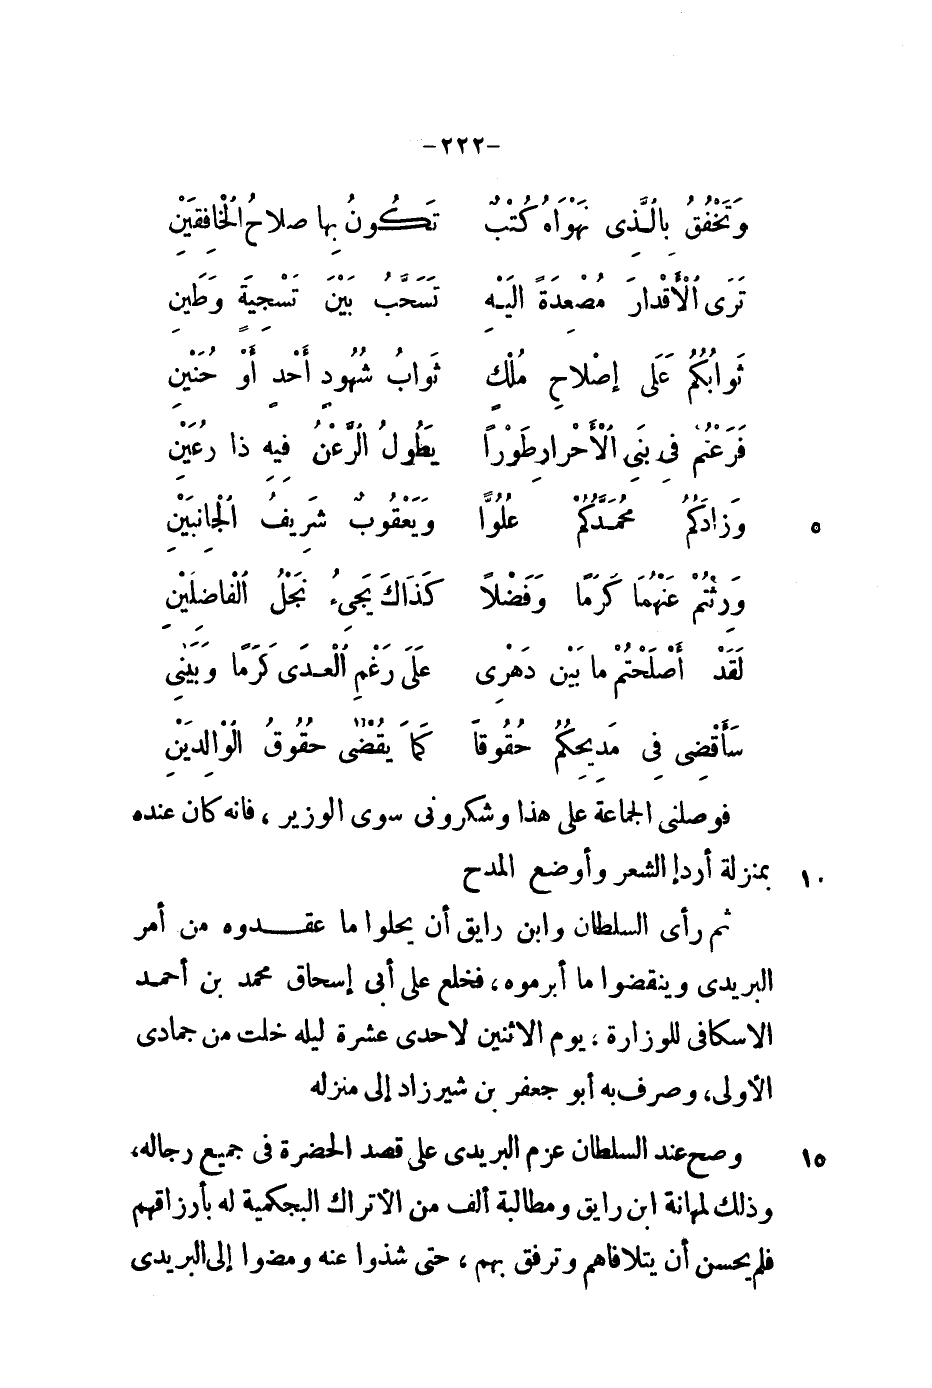 -٢٢٢-
وَتَخْفُقُ بِالَّذِى نَهْوَاهُ كُتْبٌ تَكُونُ بِها صلاحُ الْخَافِقَيْنِ
تَرَى الْأَقْدارَ مُصْعِدَةً الَيْهِ تَسَحَّبُ بَيْنَ تَسْجِيَةٍ وَطَيْنِ
ثَوابُكُمُ عَلَى إصْلاحِ مُلْكٍ ثَوابُ شُهُودِ أُحْدٍ أَوْ حُنَيْنِ
فَرَعْتُمْ فِى بَنِى الْأَحْرارِ طَوْراً يَطُولُ الرَّعْنُ فِيهِ ذا رُعَيْنِ
وَزادَكُمُ مُحمَّدُكُمْ عُلُوًّا وَيَعْقُوبٌ شَرِيفُ الْجانِبَيْنِ ٥
وَرِثْتُمْ عَنْهُمَا كَرَمًا وَفَضْلاً كَذَاكَ يَجِىءُ نَجْلُ الْفاضِلَيْنِ
لَقَدْ أَصْلَحْتُمْ ما بَيْنَ دَهْرِى عَلَى رَغْمِ الْعِدَى كَرَمًا وَبَيْنِى
سَأَقْضِى فِى مَدِيحِكُمُ حُقُوقاً كَمَا يُقْضَى حُقُوقُ الْوالِدَيْنِ
فوصلنى الجماعة على هذا وشكرونى سوى الوزير ، فانه كان عنده
بمنزلة أردإ الشعر وأوضع المدح ١٠
ثم رأى السلطان وابن رايق أن يحلوا ما عقدوه من أمر
البريدى وينقضوا ما أبرموه ، فخلع على أبى إسحاق محمد بن أحمد
الاسكافى للوزارة ، يوم الاثنين لاحدى عشرة ليله خلت من جمادى
الأولى، وصرف به أبو جعفر بن شيرزاد إلى منزله
وصح عند السلطان عزم البريدى على قصد الحضرة فى جميع رجاله، ١٥
وذلك لمهانة ابن رايق ومطالبة ألف من الأتراك البجكمية له بأرزاقهم
فلم يحسن أن يتلافاهم وترفق بهم ، حتى شذوا عنه ومضوا إلى البريدى